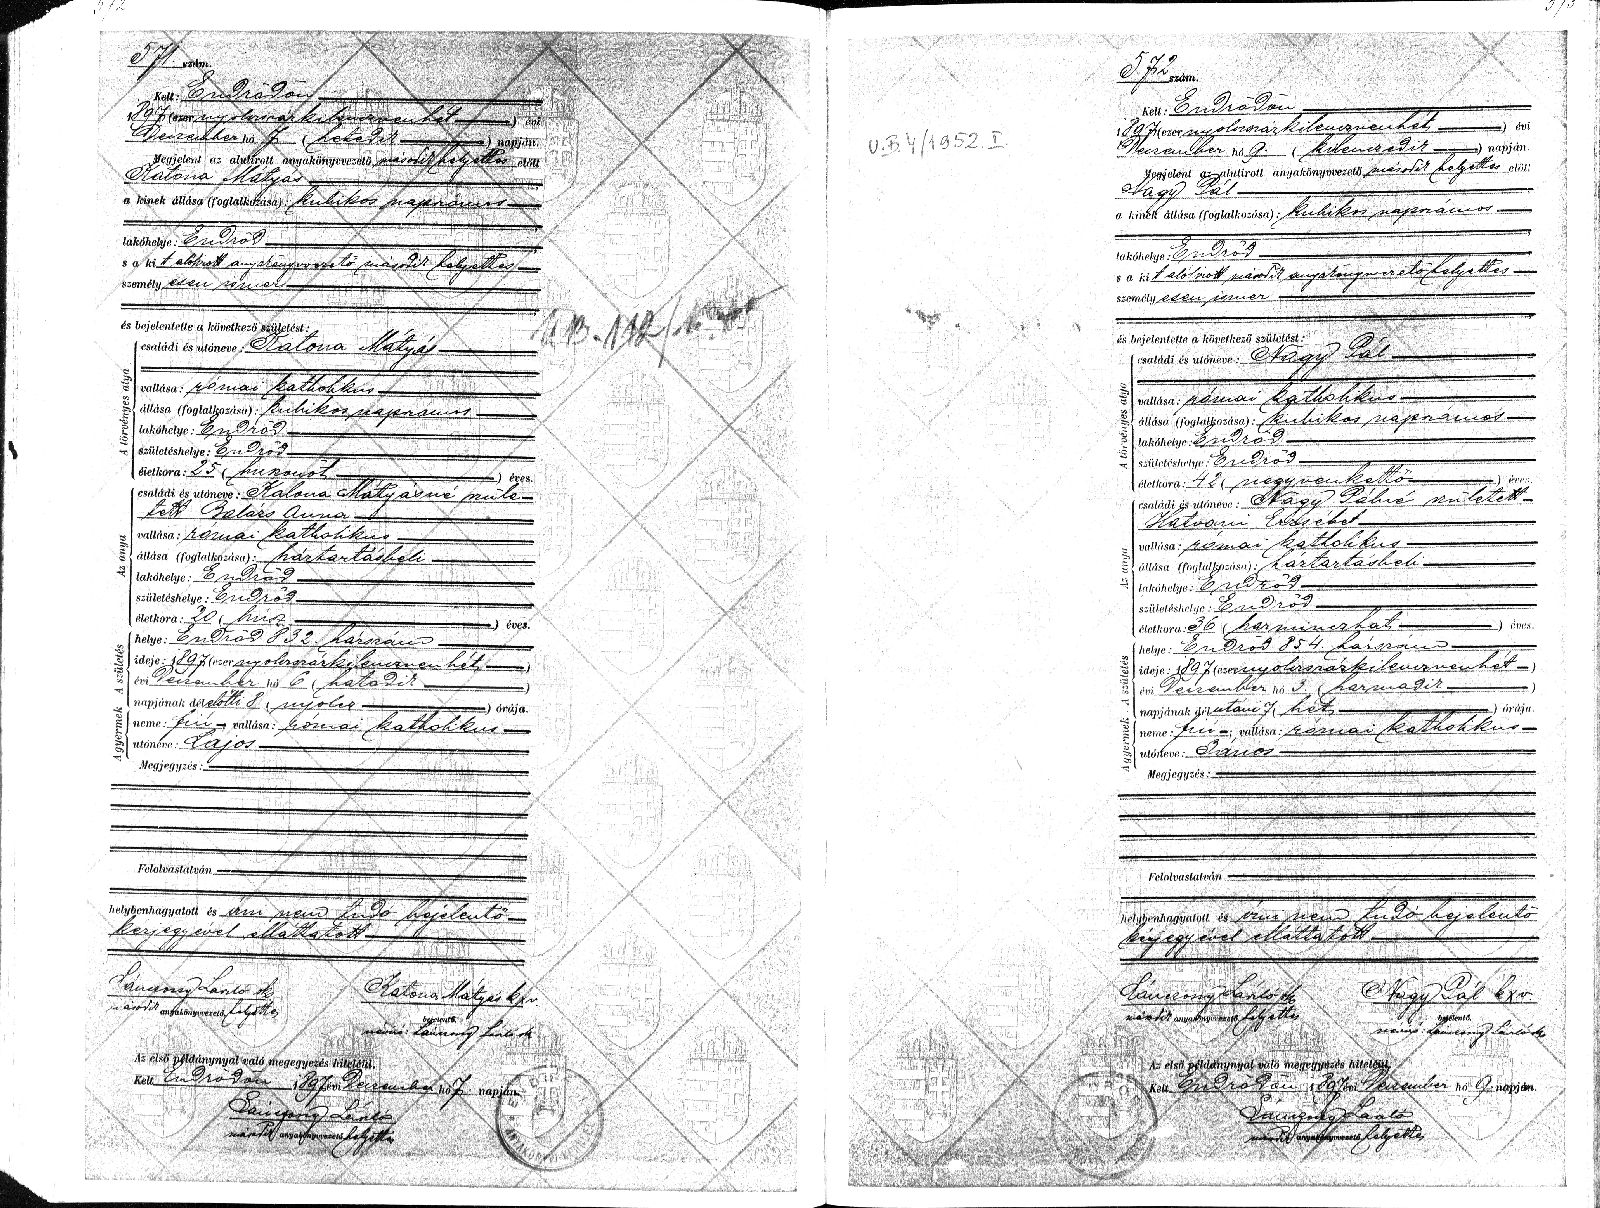 571. szám.
Kelt: Endrődön
1897 (ezer nyolcszázkilencvenhét) évi
December hó 7. (hetedik) napján.
Megjelent az alulirott anyakönyvvezető második helyettes előtt
Katona Mátyás
a kinek állása (foglalkozása): kubikos napszámos
lakóhelye: Endrőd
s a kit alólirott anyakönyvvezető második helyettes
személyesen ismer
és bejelentette a következő születést:
A törvényes atya
családi és utóneve: Katona Mátyás
vallása: római katholikus
állása (foglalkozása): kubikos napszámos
lakóhelye: Endrőd
születéshelye: Endrőd
életkora: 25 (huszonöt) éves.
Az anya
családi és utóneve: Katona Mátyásné szüle-
tett Balázs Anna
vallása: római katholikus
állása (foglalkozása): háztartásbeli
lakóhelye: Endrőd
születéshelye: Endrőd
életkora: 20 (húsz) éves.
A születés
helye: Endrőd 832 házszám
ideje: 1897 (ezer nyolcszázkilencvenhét)
évi December hó 6 (hatodik)
napjának délelőtti 8 (nyolc) órája.
A gyermek
neme: fiú vallása: római katholikus
utóneve: Lajos
Megjegyzés:
Felolvastatván
helybenhagyatott és írni nem tudó bejelentő
kézjegyével elláttatott
második anyakönyvvezető helyettes
Katona Mátyás k.x.v.
bejelentő.
Az első példánynyal való megegyezés hiteléül.
Kelt Endrődön 1897 évi December hó 7. napján.
második anyakönyvvezető helyettes
572 szám.
U.B.4/1952. I.
Kelt: Endrődön
1897 (ezer nyolcszázkilencvenhét) évi
December hó 9. (kilencedik) napján.
Megjelent az alulirott anyakönyvvezető második helyettes előtt
Nagy Pál
a kinek állása (foglalkozása): kubikos napszámos
lakóhelye: Endrőd
s a kit alólirott második anyakönyvvezető helyettes
személyesen ismer
és bejelentette a következő születést:
A törvényes atya
családi és utóneve: Nagy Pál
vallása: római katholikus
állása (foglalkozása): kubikos napszámos
lakóhelye: Endrőd
születéshelye: Endrőd
életkora: 42 (negyvenkettő) éves.
Az anya
családi és utóneve: Nagy Pálné született
Hatvani Erzsébet
vallása: római katholikus
állása (foglalkozása): háztartásbeli
lakóhelye: Endrőd
születéshelye: Endrőd
életkora: 36 (harminchat) éves.
A születés
helye: Endrőd 854 házszám
ideje: 1897 (ezer nyolcszázkilencvenhét)
évi December hó 3. (harmadik)
napjának délutáni 7 (hét) órája.
A gyermek
neme: fiú vallása: római katholikus
utóneve: János
Megjegyzés:
Felolvastatván
helybenhagyatott és írni nem tudó bejelentő
kézjegyével elláttatott
második anyakönyvvezető helyettes
Nagy Pál k.x.v.
bejelentő.
Az első példánynyal való megegyezés hiteléül.
Kelt Endrődön 1897 évi December hó 9. napján.
második anyakönyvvezető helyettes